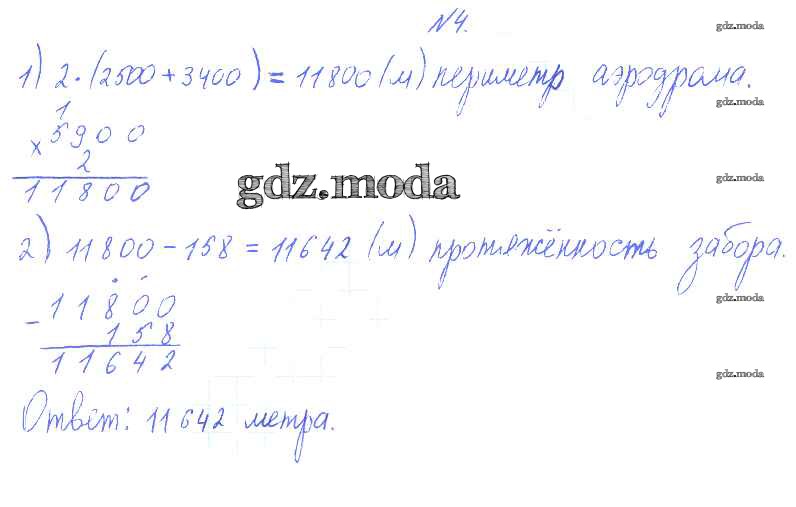 №4.
gdz.moda
1) 2·(2500+3400)=11800(м) периметр аэродрома.
gdz.moda
1
× 5900
2
11800
gdz.moda
gdz.moda
2) 11800-158=11642(м) протяжённость забора.
- 11800
158
11642
gdz.moda
gdz.moda
Ответ: 11642 метра.